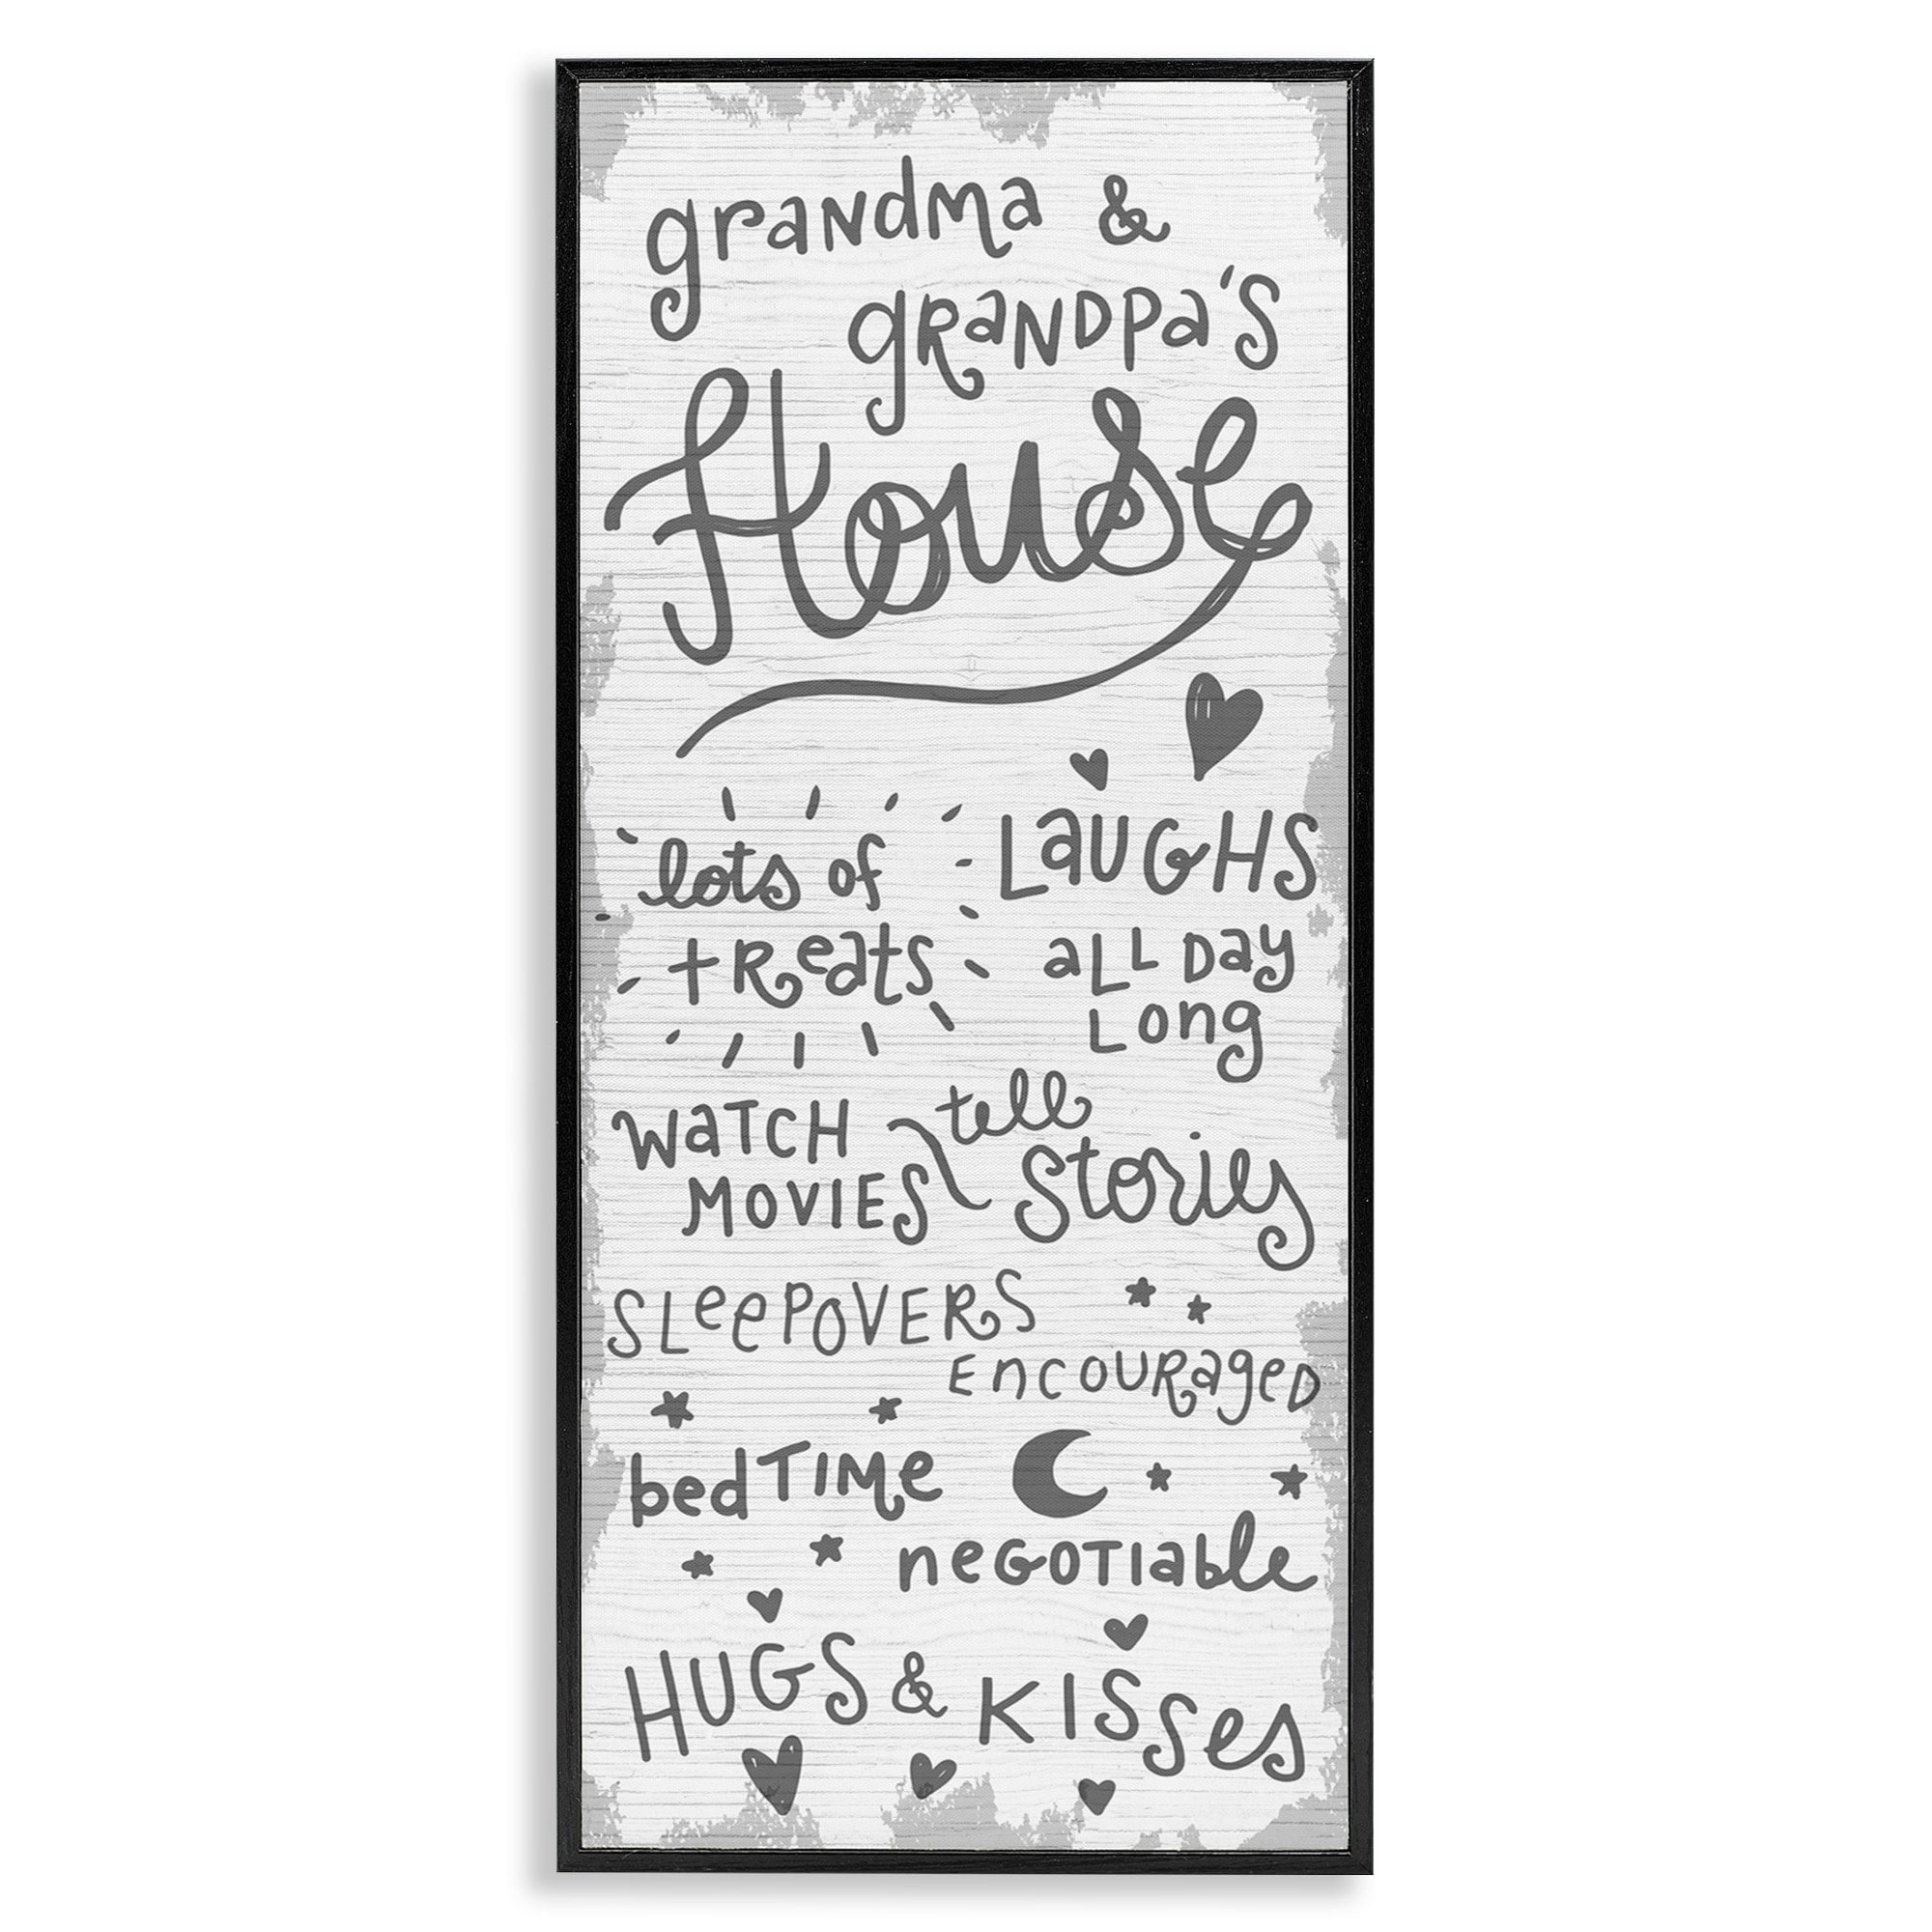 grandma &
grandpa's
House
lots of
treats
Laughs
all day
long
watch
movies
tell
stories
sleepovers
encouraged
bedtime
negotiable
Hugs & Kisses